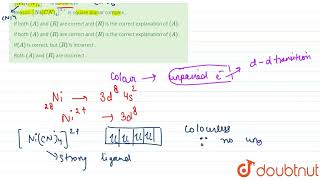 Reason : [Ni(CN)₄]²⁻ is square planar complex.
If both (A) and (R) are correct and (R) is the correct explanation of (A).
If both (A) and (R) are correct, but (R) is not the correct explanation of (A).
If (A) is correct, but (R) is incorrect.
Both (A) and (R) are incorrect.
Colour → unpaired e⁻ → d-d transition
Ni → 3d⁸ 4s²
28
Ni²⁺ → 3d⁸
[Ni(CN)₄]²⁺
Strong ligand
Colourless
∵ no
doubtnut